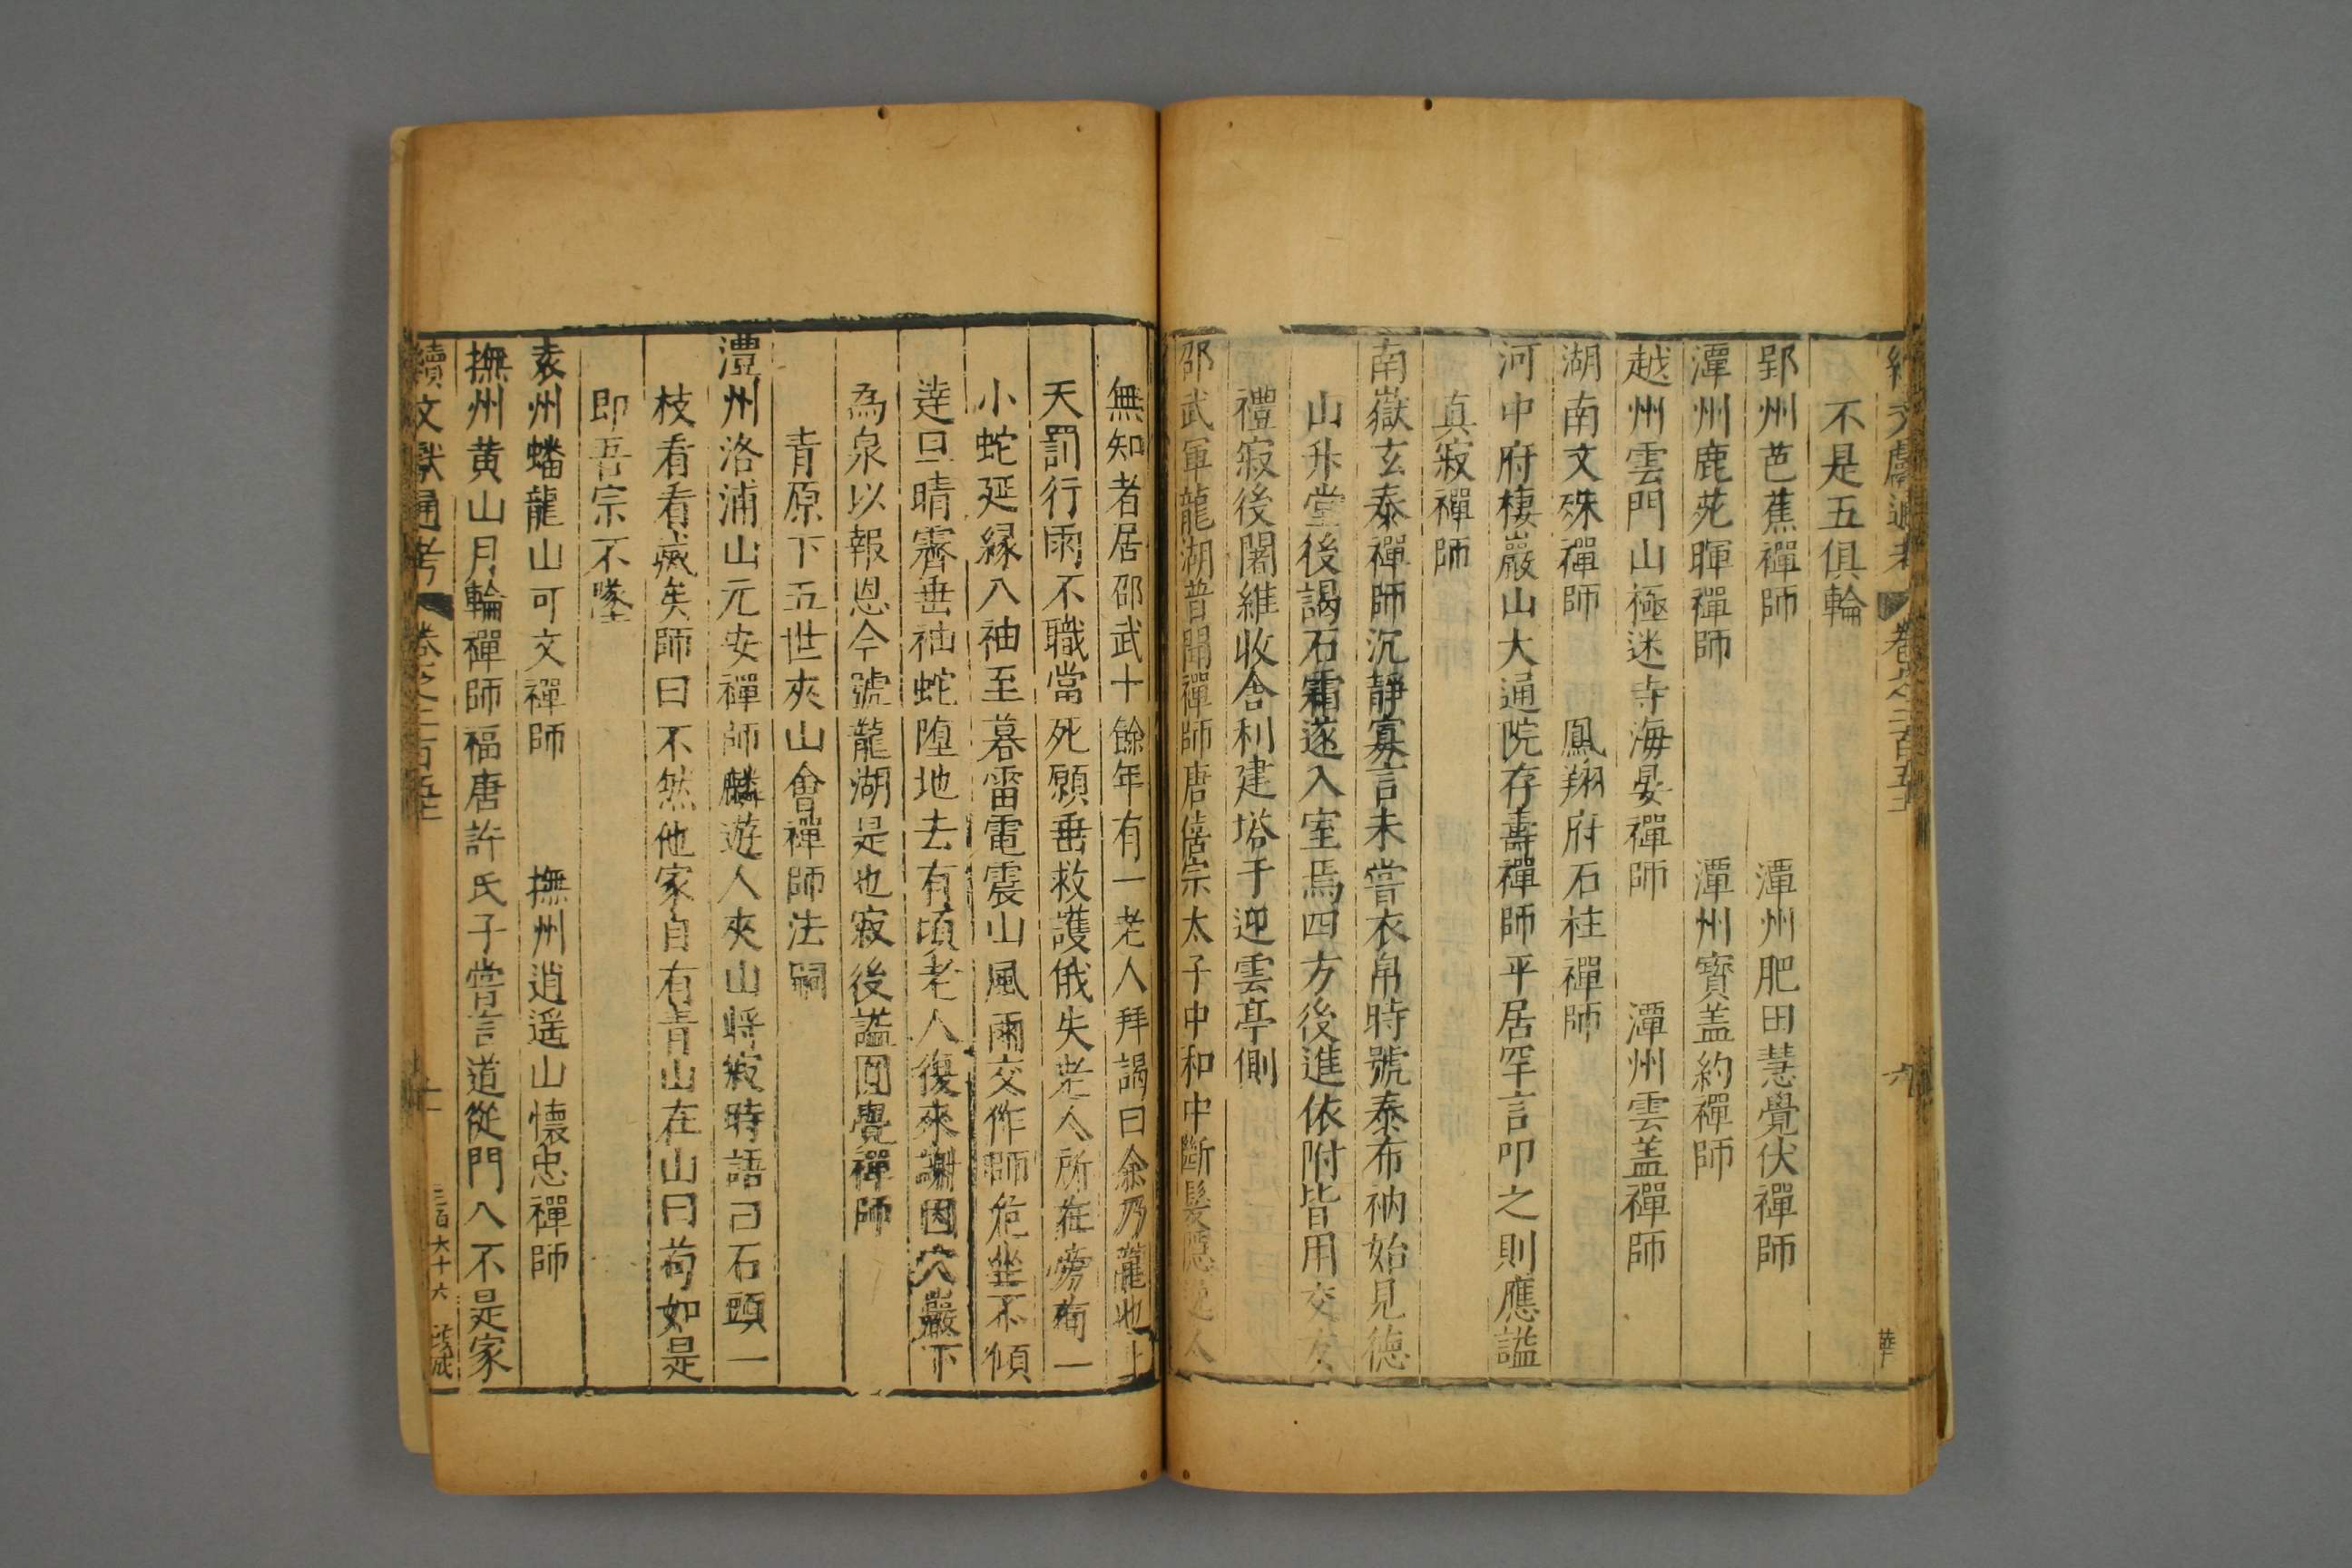 續文獻通考 卷之二百五十 六 華
不是五俱輪
郢州芭蕉禪師 潭州肥田慧覺伏禪師
潭州鹿苑暉禪師 潭州寳盖約禪師
越州雲門山極迷寺海晏禪師 潭州雲盖禪師
湖南文殊禪師 鳳翔府石柱禪師
河中府棲巖山大通院存壽禪師平居罕言叩之則應謚
真寂禪師
南嶽玄泰禪師沉靜寡言未嘗衣帛時號泰布衲始見德
山升堂後謁石霜遂入室焉四方後進依附皆用交友
禮寂後闍維收舍利建塔于迎雲亭側
邵武軍龍湖普聞禪師唐僖宗太子中和中斷髮逸人
無知者居邵武十餘年有一老人拜謁曰余乃龍也上
天罰行雨不職當死願垂救護俄失老人所在旁有一
小蛇延縁入袖至暮雷電震山風雨交作師危坐不傾
逹旦晴霽垂袖蛇墮地去有頃老人復來謝因穴巖下
為泉以報恩今號龍湖是也寂後謚圓覺禪師
青原下五世夾山會禪師法嗣
澧州洛浦山元安禪師麟遊人夾山將寂時語曰石頭一
枝看看滅矣師曰不然他家自有青山在山曰茍如是
即吾宗不墜
袁州蟠龍山可文禪師 撫州逍遥山懷忠禪師
撫州黄山月輪禪師福唐許氏子嘗言道從門入不是家
續文獻通考 卷之二百五十 十一 三百六十六